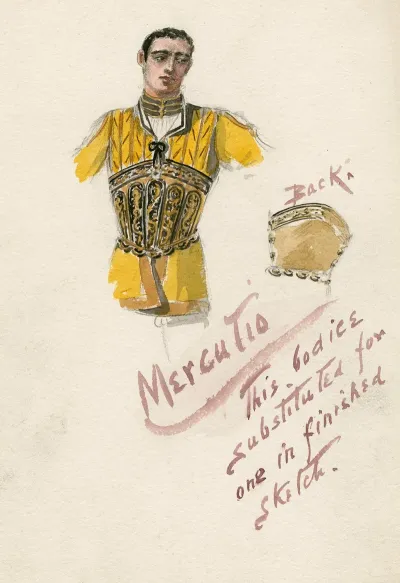 Back.
Mercutio
This bodice
substituted for
one in finished
sketch.